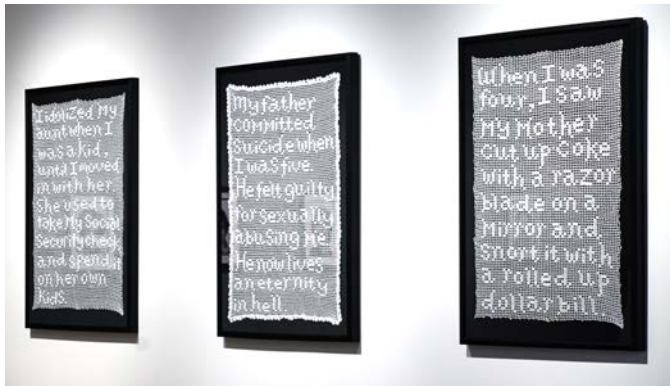 I idolized My
aunt when I
was a kid,
until I moved
in with her.
She used to
take My Social
Security check
and spend it
on her own
kids.
My father
committed
suicide when
I was five.
He felt guilty
for sexually
abusing Me.
He now lives
an eternity
in hell.
When I was
four, I saw
My Mother
cut up coke
with a razor
blade on a
Mirror and
snort it with
a rolled up
dollar bill.